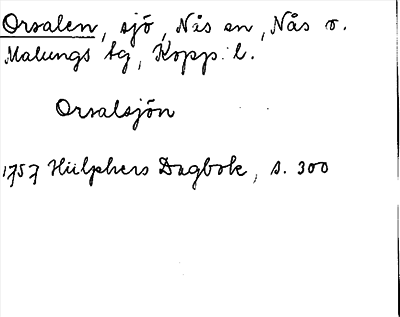 Orsalen, sjö, Nås sn, Nås o.
Malungs tg, Kopp. l.
Orsalsjön
1757 Hülphers Dagbok, s. 300